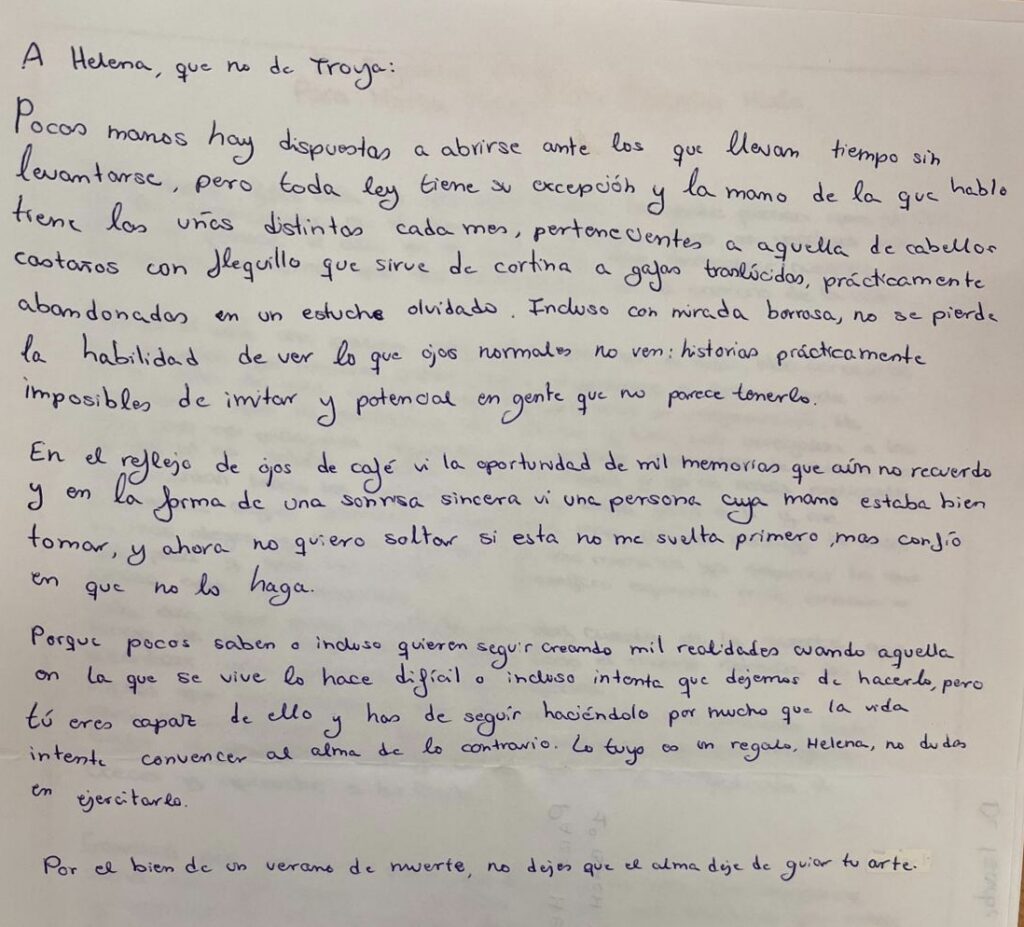 A Helena, que no de Troya:
Pocas manos hay dispuestas a abrirse ante los que llevan tiempo sin
levantarse, pero toda ley tiene su excepción y la mano de la que hablo
tiene las uñas distintas cada mes, pertenecientes a aquella de cabellos
castaños con flequillo que sirve de cortina a gafas translúcidas, prácticamente
abandonadas en un estuche olvidado. Incluso con mirada borrosa, no se pierde
la habilidad de ver lo que ojos normales no ven: historias prácticamente
imposibles de imitar y potencial en gente que no parece tenerlo.
En el reflejo de ojos de café vi la oportunidad de mil memorias que aún no recuerdo
y en la forma de una sonrisa sincera vi una persona cuya mano estaba bien
tomar, y ahora no quiero soltar si esta no me suelta primero, mas confío
en que no lo haga.
Porque pocos saben o incluso quieren seguir creando mil realidades cuando aquella
en la que se vive lo hace difícil o incluso intenta que dejemos de hacerlo, pero
tú eres capaz de ello y has de seguir haciéndolo por mucho que la vida
intente convencer al alma de lo contrario. Lo tuyo es un regalo, Helena, no dudes
en ejercitarlo.
Por el bien de un verano de muerte, no dejes que el alma deje de guiar tu arte.